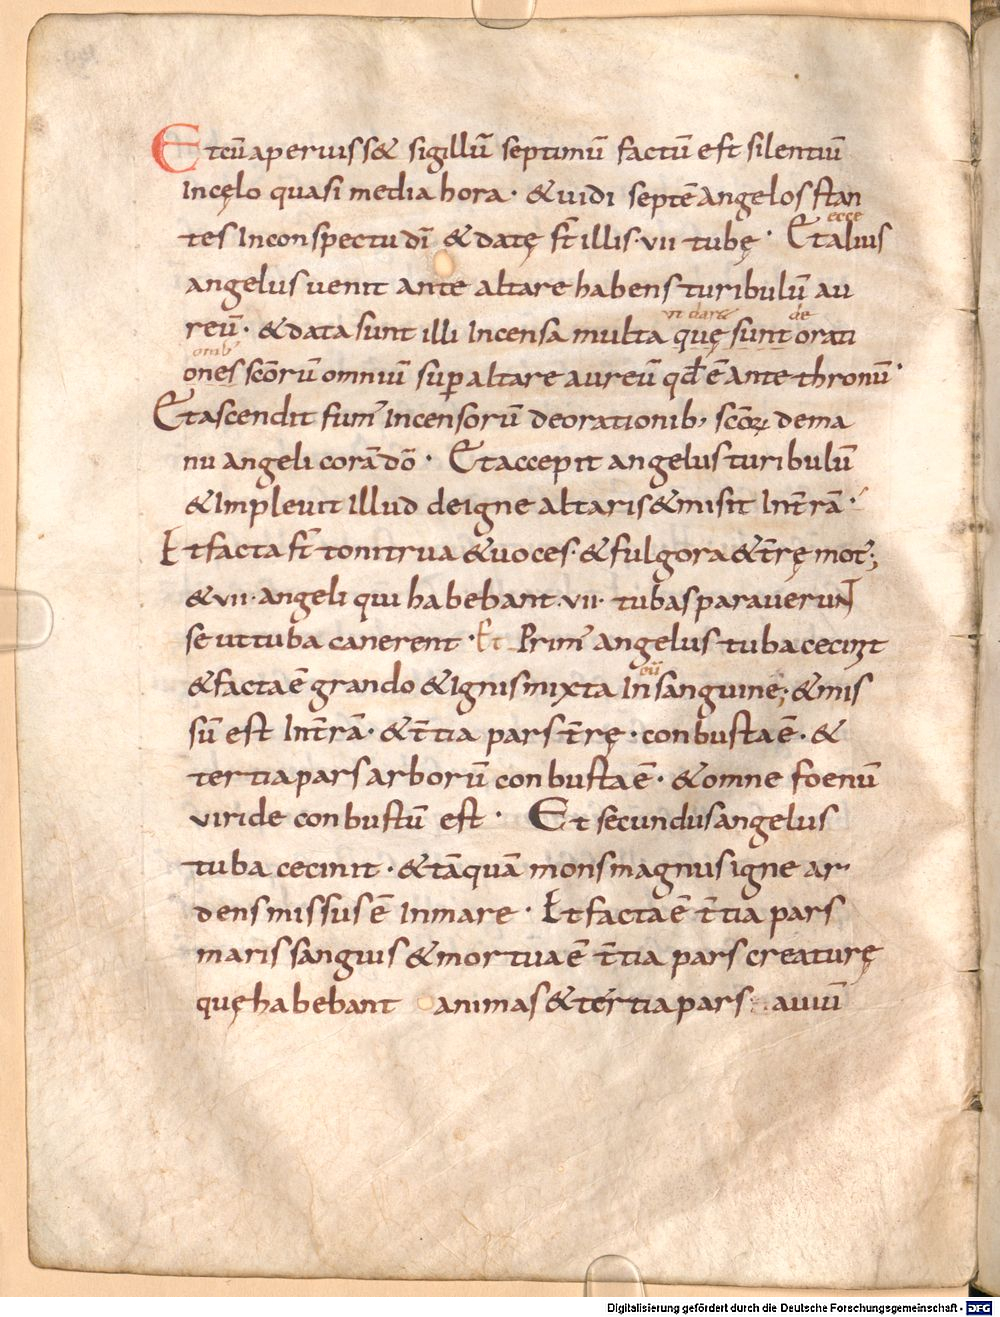 Et cū aperuiss& sigillū septimū factū est silentiū
Incęlo quasi media hora · & uidi septē Angelos stan
ecce
tes Inconspectu dī & datę st̄ illis · vii · tubę · Et alius
angelus uenit ante altare habens turibulū au
ut dar& de
reū · & data sunt illi Incensa multa quę sunt orati
onib;
ones scōrū omniū sup altare aureū qđ ē Ante thronū ·
Et ascendit fum' Incensorū deorationib; scōꝝ dema
nu Angeli corā dō · Et accepit angelus turibulū
& Impleuit illud deigne altaris & misit Int̄rā ·
Et facta st̄ tonitrua & uoces · & fulgora & t̄rę mot';
& vii · angeli qui habebant · vii · tubas parauerunt
se ut tuba canerent · Et Prim' angelus tuba cecinit
& facta ē grando & Ignis mixta In sanguine; & mis
sū est Int̄rā · & t̄tia pars t̄rę · conbusta ē · &
tertia pars arborū conbusta ē · & omne foenū
uiride conbustū est · Et secundus angelus
tuba cecinit · & tāquā mons magnus igne ar
dens missus ē Inmare · Et facta ē t̄tia pars
maris sanguis & mortua ē t̄tia pars creaturę
quę habebant animas & tertia pars auiū
Digitalisierung gefördert durch die Deutsche Forschungsgemeinschaft - DFG